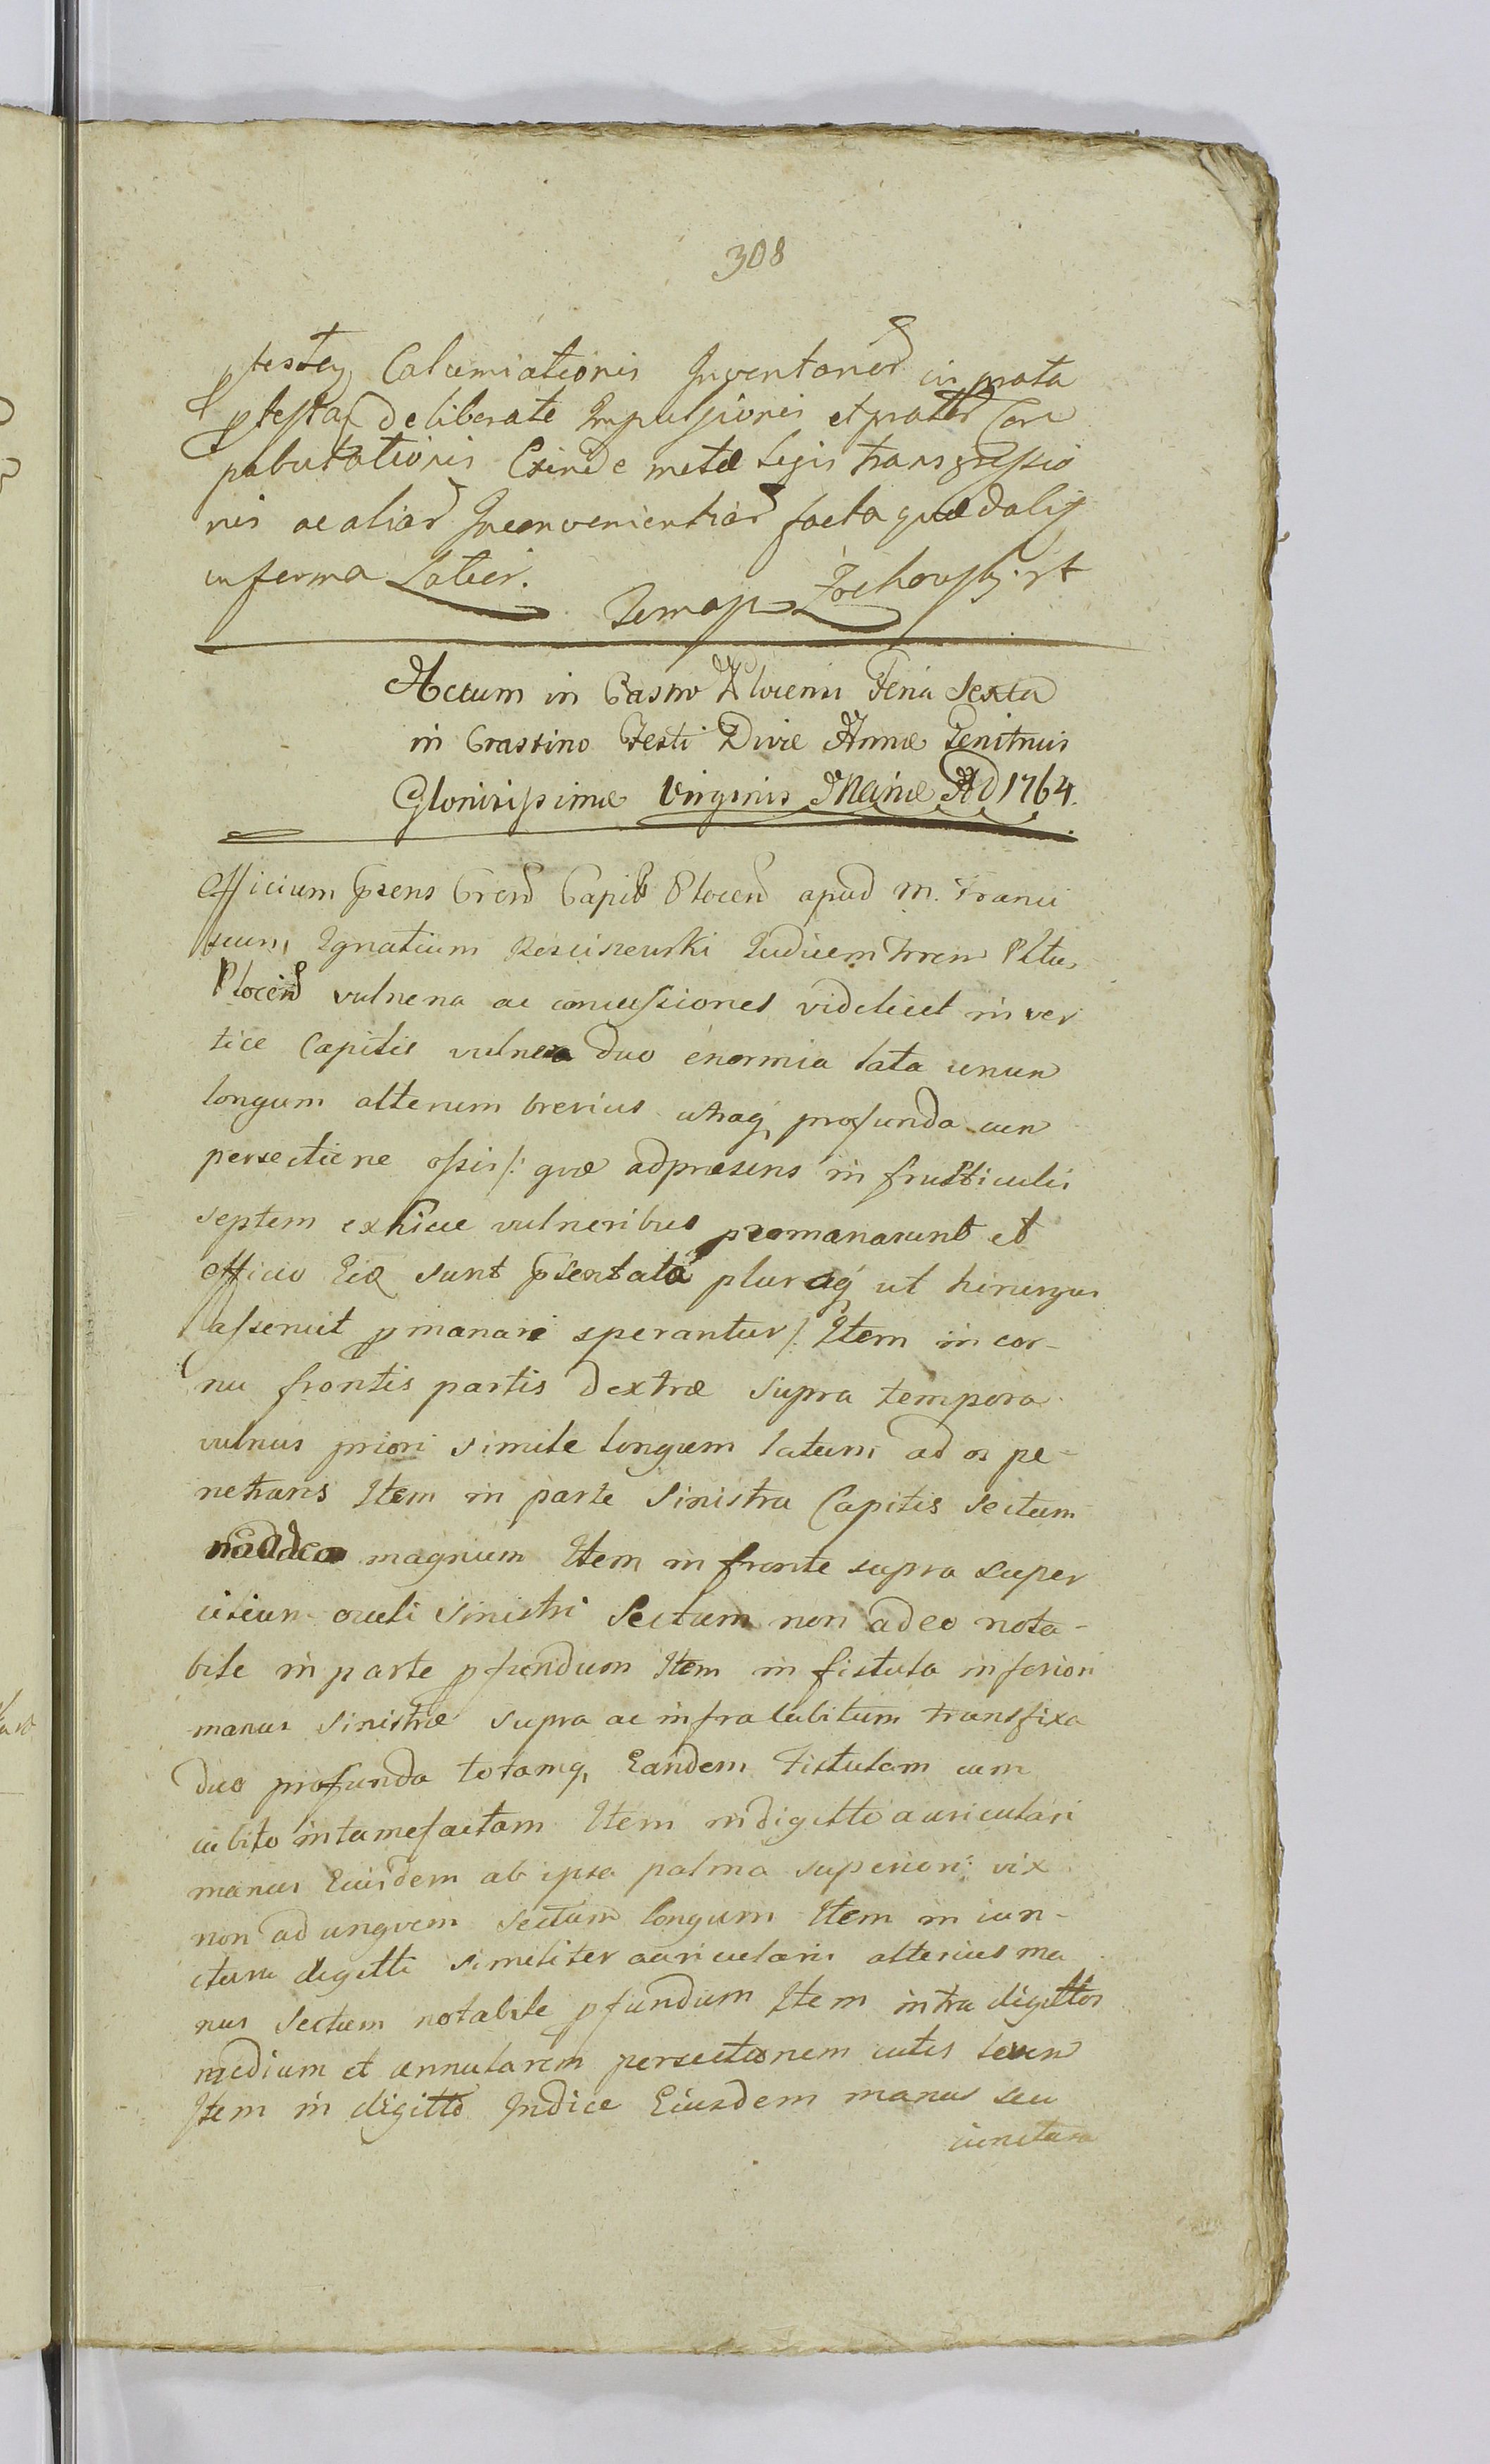 308
Calumiationis Inventaried in
deliberate Impulsionis et
Exinde metæ legis transgressio
nis ac aliar Inconvenientiar facta
in forma Latiori.
Actum in Castro Plocensi Feria Sexta
in Crastino Festi Divæ Annæ Genitricis
Gloriosissimæ Virginis Mariæ AD 1764.
Officium Præns Cren Capit Plocen apud M. Franci
scum Ignatium Rościszewski Iudicem Terren Pltus
Plocen vulnera ac concussiones videlicet in ver
tice Capitis vulnera duo enormia lata unum
longum alterum brevius utraq profunda cum
persectione ossis /: quæ adpræsens in frusticulis
septem exhisce vulneribus promanarunt et
officio sunt præsentata pluraq ut hirurgus
asseruit pmanari sperantur /: Item in cor-
nu frontis partis dextræ supra tempora
vulnus priori simile longum latum ad os pe-
netrans Item in parte Sinistra Capitis sectum
magnum Item in fronte supra super
cilium oculi Sinistri Sectum non adeo nota-
bile in parte pfundum Item in fistula inferiori
manus Sinistræ supra ac infra cubitum transfixa
duo profunda totamq, Eandem Fistulam cum
cubito intumefactam Item in digitto auriculari
manus Eiusdem ab ipsa palma superiori vix
non ad unguem Sectum longum Item in iun-
ctura digitti similiter auricularis alterius ma
nus Sectum notabile pfundum Item intra digittos
medium et annularem persectionem cutis levem
Item in digitto Indice Eiusdem manus seu
iunctura